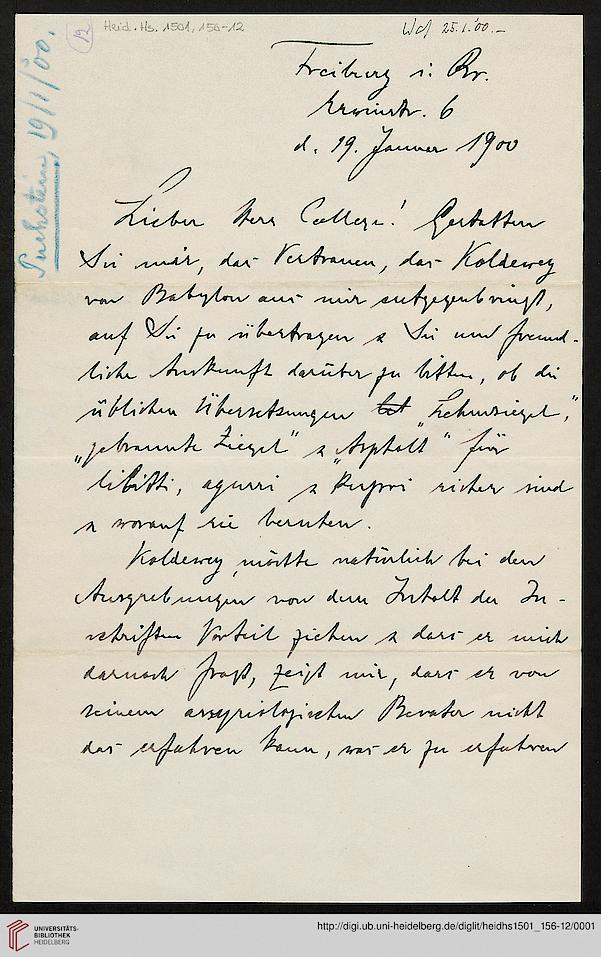 12
Heid. Hs. 1501, 156-12
25.1.'00.-
Puchstein, 19/1/'00.
Freiburg i. Br.
Erwinstr. 6
d. 19. Januar 1900
Lieber Herr College! Gestatten
Sie mir, das Vertrauen, das Koldewey
von Babylon aus mir entgegenbringt,
auf Sie zu übertragen & Sie um freund-
liche Auskunft darüber zu bitten, ob die
üblichen Übersetzungen "Lehmziegel",
"gebrannte Ziegel" & "Asphalt" für
libitti, agurri & kupri sicher sind
& worauf sie beruhen.
Koldewey möchte natürlich bei den
Ausgrabungen von dem Inhalt der In-
schriften Vorteil ziehen & dass er mich
darnach fragt, zeigt mir, dass er von
seinem assyriologischen Berater nicht
das erfahren kann, was er zu erfahren
UNIVERSITÄTS-
BIBLIOTHEK
HEIDELBERG
http://digi.ub.uni-heidelberg.de/diglit/heidhs1501_156-12/0001